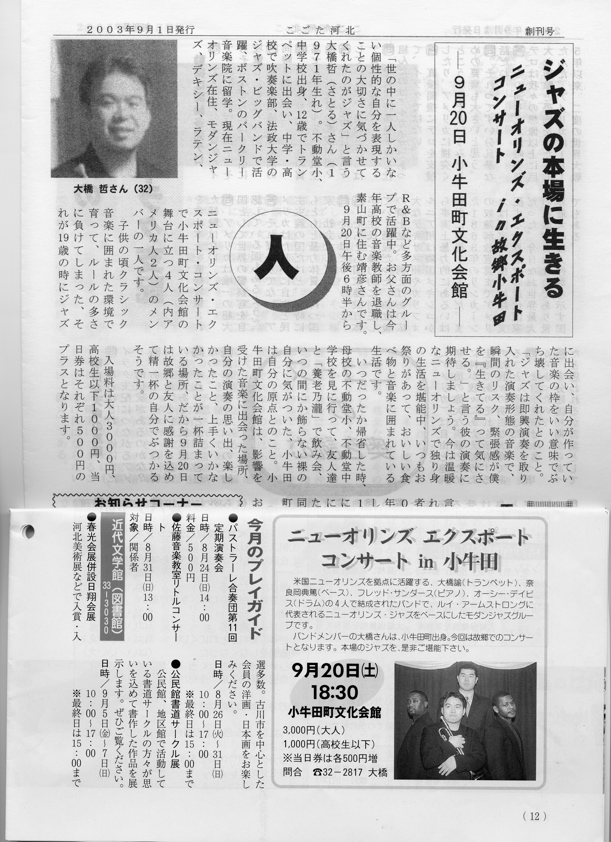 2003年9月1日発行
こごた河北
創刊号
ジャズの本場に生きる
ニューオリンズ・エクスポート
コンサート in 故郷小牛田
―9月20日 小牛田町文化会館―
「世の中に一人しかいな
い個性的な自分を表現する
ことの大切さに気づかせて
くれたのがジャズ」と言う
大橋哲(さとる)さん(1
971年生れ)。不動堂小、
中学校出身、12歳でトラン
ペットに出会い、中学・高
校で吹奏楽部、法政大学の
ジャズ・ビッグバンドで活
躍、ボストンのバークリー
音楽院に留学。現在ニュー
オリンズ在住、モダンジャ
ズ、デキシー、ラテン、
大橋 哲さん(32)
R&Bなど多方面のグルー
プで活躍中。お父さんは今
年高校の音楽教師を退職し、
素山町に住む靖彦さんです。
9月20日午後6時半から
人
ニューオリンズ・エク
スポート・コンサート
で小牛田町文化会館の
舞台に立つ4人(内ア
メリカ人2人)のメン
バーの一人です。
子供の頃クラシック
音楽に囲まれた環境で
育って、ルールの多さ
に負けてしまった、そ
れが19歳の時にジャズ
に出会い、自分が作ってい
た音楽の枠をいい意味でぶ
ち壊してくれたとのこと。
「ジャズは即興演奏を取り
入れた演奏形態の音楽で、
瞬間のリスク、緊張感が僕
を『生きてる』って気にさ
せる。」と言う彼の演奏に
期待しましょう。今は温暖
なニューオリンズで独り身
の生活を堪能中、いつもお
祭りがあって、おいしい食
べ物と音楽に囲まれている
生活です。
いつだったか帰省した時、
母校の不動堂小、不動堂中
学校を見に行って、友人達
と「養老乃瀧」で飲み会、
いつの間にか飾らない裸の
自分に気がついた。小牛田
は自分の原点とのこと。小
牛田町文化会館は、影響を
受けた音楽に出会った場所、
自分の演奏の思い出、楽し
かったこと、上手くいかな
かったことが一杯詰まって
いる場所、だから9月20日
は故郷と友人に感謝を込め
て精一杯の自分でぶつかる
そうです。
入場料は大人3000円、
高校生以下1000円、当
日券はそれぞれ500円の
プラスとなります。
お知らせコーナー
ニューオリンズ エクスポート
コンサート in 小牛田
米国ニューオリンズを拠点に活躍する、大橋諭(トランペット)、奈
良岡典篤(ベース)、フレッド・サンダース(ピアノ)、オーシー・デイビ
ス(ドラム)の4人で結成されたバンドで、ルイ・アームストロングに
代表されるニューオリンズ・ジャズをベースにしたモダンジャズグルー
プです。
バンドメンバーの大橋さんは、小牛田町出身。今回は故郷でのコンサー
トとなります。本場のジャズを、是非ご堪能下さい。
9月20日(土)
18:30
小牛田町文化会館
3,000円(大人)
1,000円(高校生以下)
※当日券は各500円増
問合 ☎32-2817 大橋
今月のプレイガイド
●パストラーレ合奏団第11回
定期演奏会
日時/8月24日(日)14:00
料金/500円
●佐藤音楽教室リトルコンサー
ト
日時/8月31日(日)13:00
対象/関係者
近代文学館(図書館)
33-3030
●春光会展併設日翔会展
河北美術展などで入賞・入
選多数。古川市を中心とした
会員の洋画・日本画をお楽し
みください。
日時/8月26日(火)~31日(日)
10:00~17:00
※最終日は15:00まで
●公民館書道サークル展
公民館、地区館で活動して
いる書道サークルの方々が思
いを込めて書作した作品を展
示します。ぜひご覧ください。
日時/9月5日(金)~7日(日)
10:00~17:00
※最終日は15:00まで
(12)